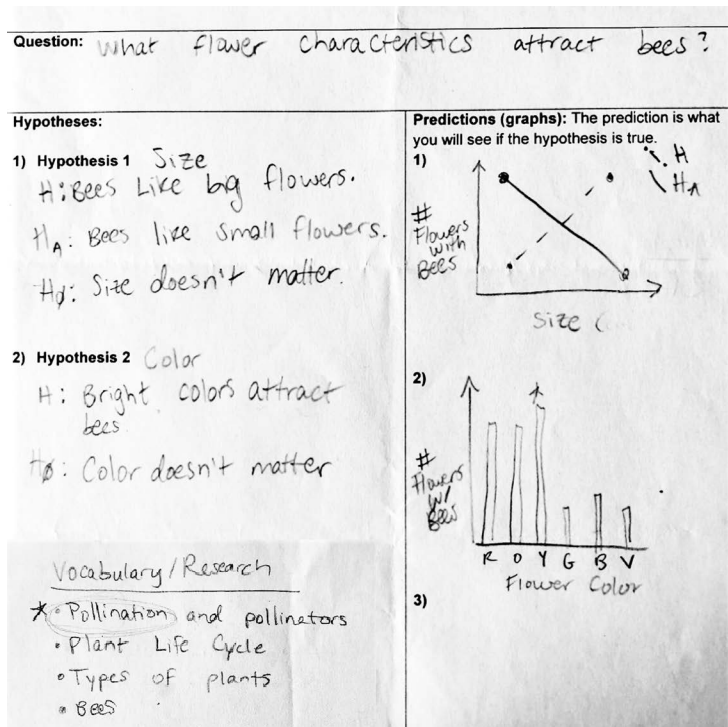 Question: What flower characteristics attract bees?
Hypotheses:
1) Hypothesis 1 Size
H: Bees Like big flowers.
HA: Bees like small flowers.
HØ: Size doesn't matter.
2) Hypothesis 2 Color
H: Bright colors attract
bees
HØ: Color doesn't matter
Vocabulary/Research
* • Pollination and pollinators
• Plant Life Cycle
• Types of plants
• Bees
Predictions (graphs): The prediction is what
you will see if the hypothesis is true.
1)
H
HA
#
Flowers
with
Bees
Size (
2)
#
Flowers
w/
Bees
R O Y G B V
Flower Color
3)